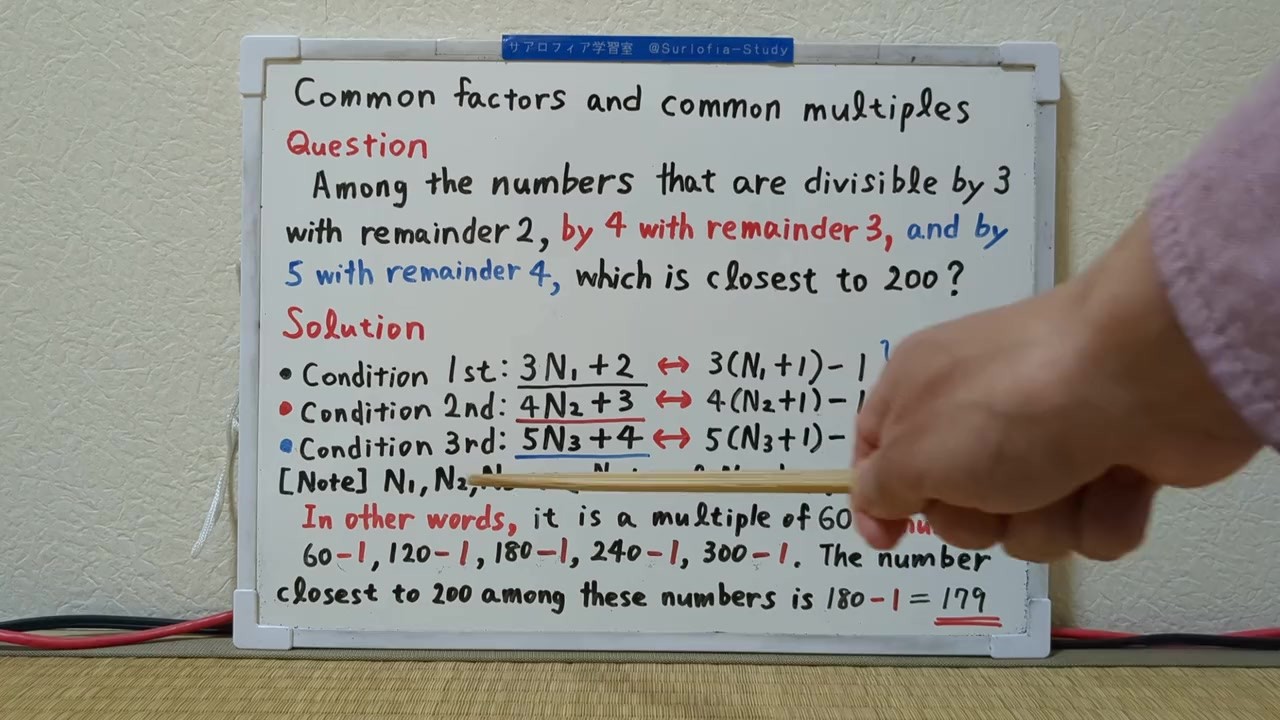 サアロフィア学習室 @Surlofia-Study
Common factors and common multiples
Question
Among the numbers that are divisible by 3
with remainder 2, by 4 with remainder 3, and by
5 with remainder 4, which is closest to 200?
Solution
• Condition 1st: 3N₁+2 ↔ 3(N₁+1)-1
• Condition 2nd: 4N₂+3 ↔ 4(N₂+1)-1
• Condition 3rd: 5N₃+4 ↔ 5(N₃+1)-
[Note] N₁, N₂,
In other words, it is a multiple of 60
60-1, 120-1, 180-1, 240-1, 300-1. The number
closest to 200 among these numbers is 180-1=179